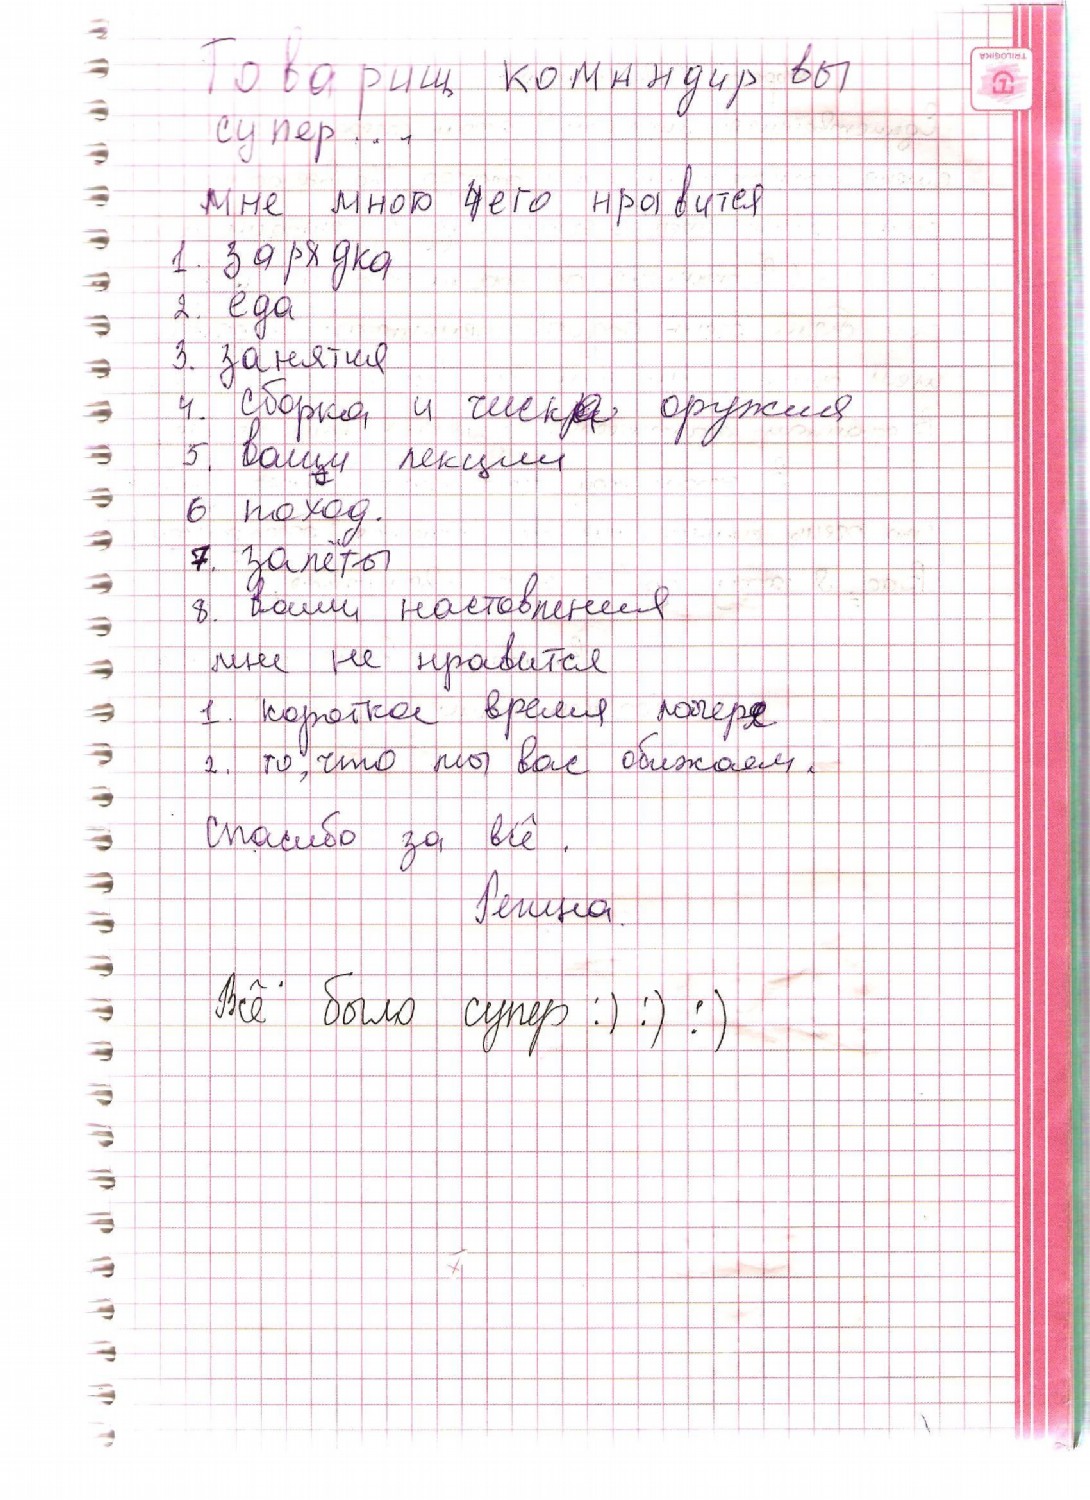 Товарищ командир вы
супер...
мне много чего нравится
1. зарядка
2. еда
3. занятия
4. сборка и чиска оружия
5. ваши лекции
6 поход.
7. залёты
8. ваши наставления
мне не нравится
1. короткое время лагере
2. то, что мы вас обижаем.
Спасибо за всё.
Регина.
Всё было супер :) :) :)
TRILOGIKA